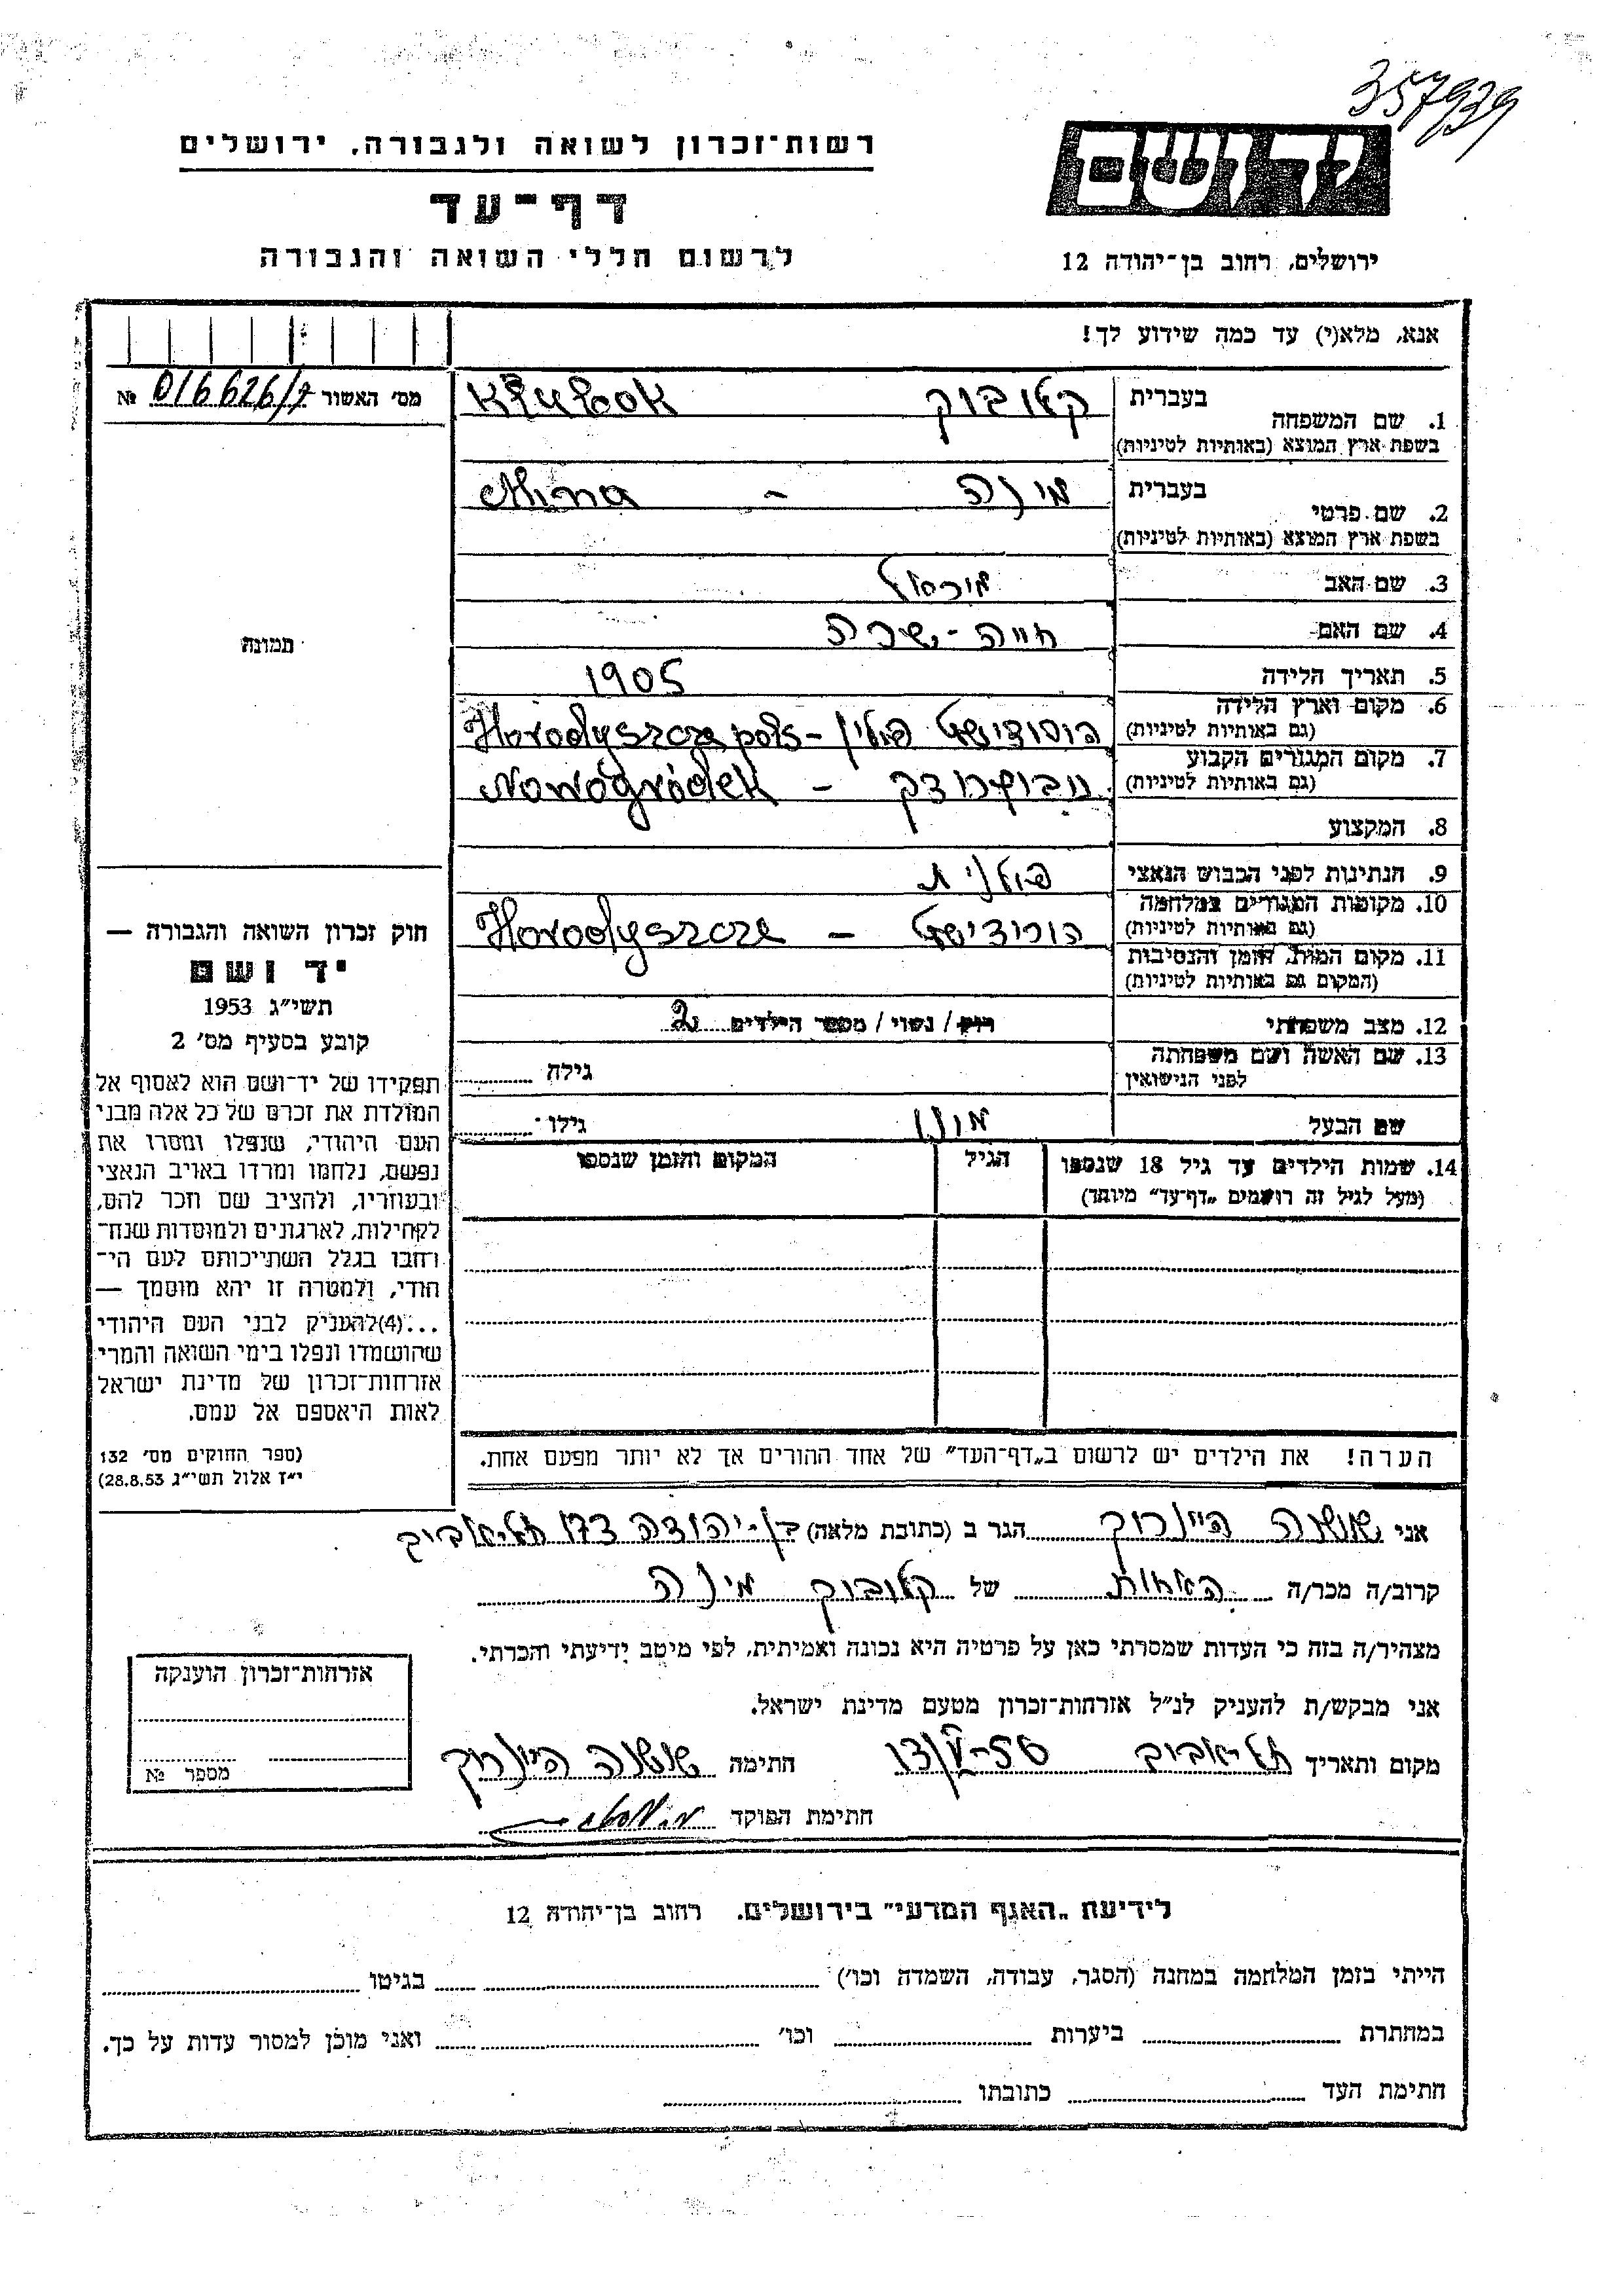 357939
רשות־זכרון לשואה ולגבורה, ירושלים
יד ושם
דף־עד
לרשום חללי השואה והגבורה
ירושלים, רחוב בן־יהודה 12
אנא, מלא(י) עד כמה שידוע לך!
מס׳ האשור № 016626/7
1. שם המשפחה
בעברית
קלובוק Kłubok
בשפת ארץ המוצא (באותיות לטיניות)
2. שם פרטי
בעברית
מינה - Mina
בשפת ארץ המוצא (באותיות לטיניות)
3. שם האב
4. שם האם חיה-שרה
5. תאריך הלידה 1905
6. מקום וארץ הלידה הורודישט פולין- Horodyszcze pols
(גם באותיות לטיניות)
7. מקום המגורים הקבוע נובוגרודק - Nowogródek
(גם באותיות לטיניות)
8. המקצוע
9. הנתינות לפני הכבוש הנאצי פולנית
10. מקומות המגורים במלחמה הורודישט - Horodyszcze
(גם באותיות לטיניות)
11. מקום המות, הזמן והנסיבות
(המקום גם באותיות לטיניות)
12. מצב משפחתי רוק / נשוי / מספר הילדים 2
13. שם האשה ושם משפחתה
לפני הנישואין
גילה
שם הבעל
גילו
14. שמות הילדים עד גיל 18 שנספו
(מעל לגיל זה רושמים „דף־עד״ מיוחד)
הגיל
המקום והזמן שנספו
הערה! את הילדים יש לרשום ב„דף־העד״ של אחד ההורים אך לא יותר מפעם אחת.
תמונה
חוק זכרון השואה והגבורה —
יד ושם
תשי״ג 1953
קובע בסעיף מס׳ 2
תפקידו של יד־ושם הוא לאסוף אל
המולדת את זכרם של כל אלה מבני
העם היהודי, שנפלו ומסרו את
נפשם, נלחמו ומרדו באויב הנאצי
ובעוזריו, ולהציב שם וזכר להם,
לקהילות, לארגונים ולמוסדות שנח־
רחבו בגלל השתייכותם לעם הי־
הודי, ולמטרה זו יהא מוסמך —
...(4)להעניק לבני העם היהודי
שהושמדו ונפלו בימי השואה והמרי
אזרחות־זכרון של מדינת ישראל
לאות היאספם אל עמם.
(ספר החוקים מס׳ 132
י״ז אלול תשי״ג 28.8.53)
אני שושנה הגר ב (כתובת מלאה) בן-יהודה תל-אביב
קרוב/ה מכר/ה האחות של קלובוק מינה
מצהיר/ה בזה כי העדות שמסרתי כאן על פרטיה היא נכונה ואמיתית, לפי מיטב ידיעתי והכרתי.
אני מבקש/ת להעניק לנ״ל אזרחות־זכרון מטעם מדינת ישראל.
מקום ותאריך תל-אביב חתימה שושנה
חתימת הפוקד
אזרחות־זכרון הוענקה
מספר №
לידיעת „האגף המדעי״ בירושלים, רחוב בן־יהודה 12
הייתי בזמן המלחמה במחנה (הסגר, עבודה, השמדה וכו׳) בגיטו
במחתרת ביערות וכו׳ ואני מוכן למסור עדות על כך.
חתימת העד כתובתו